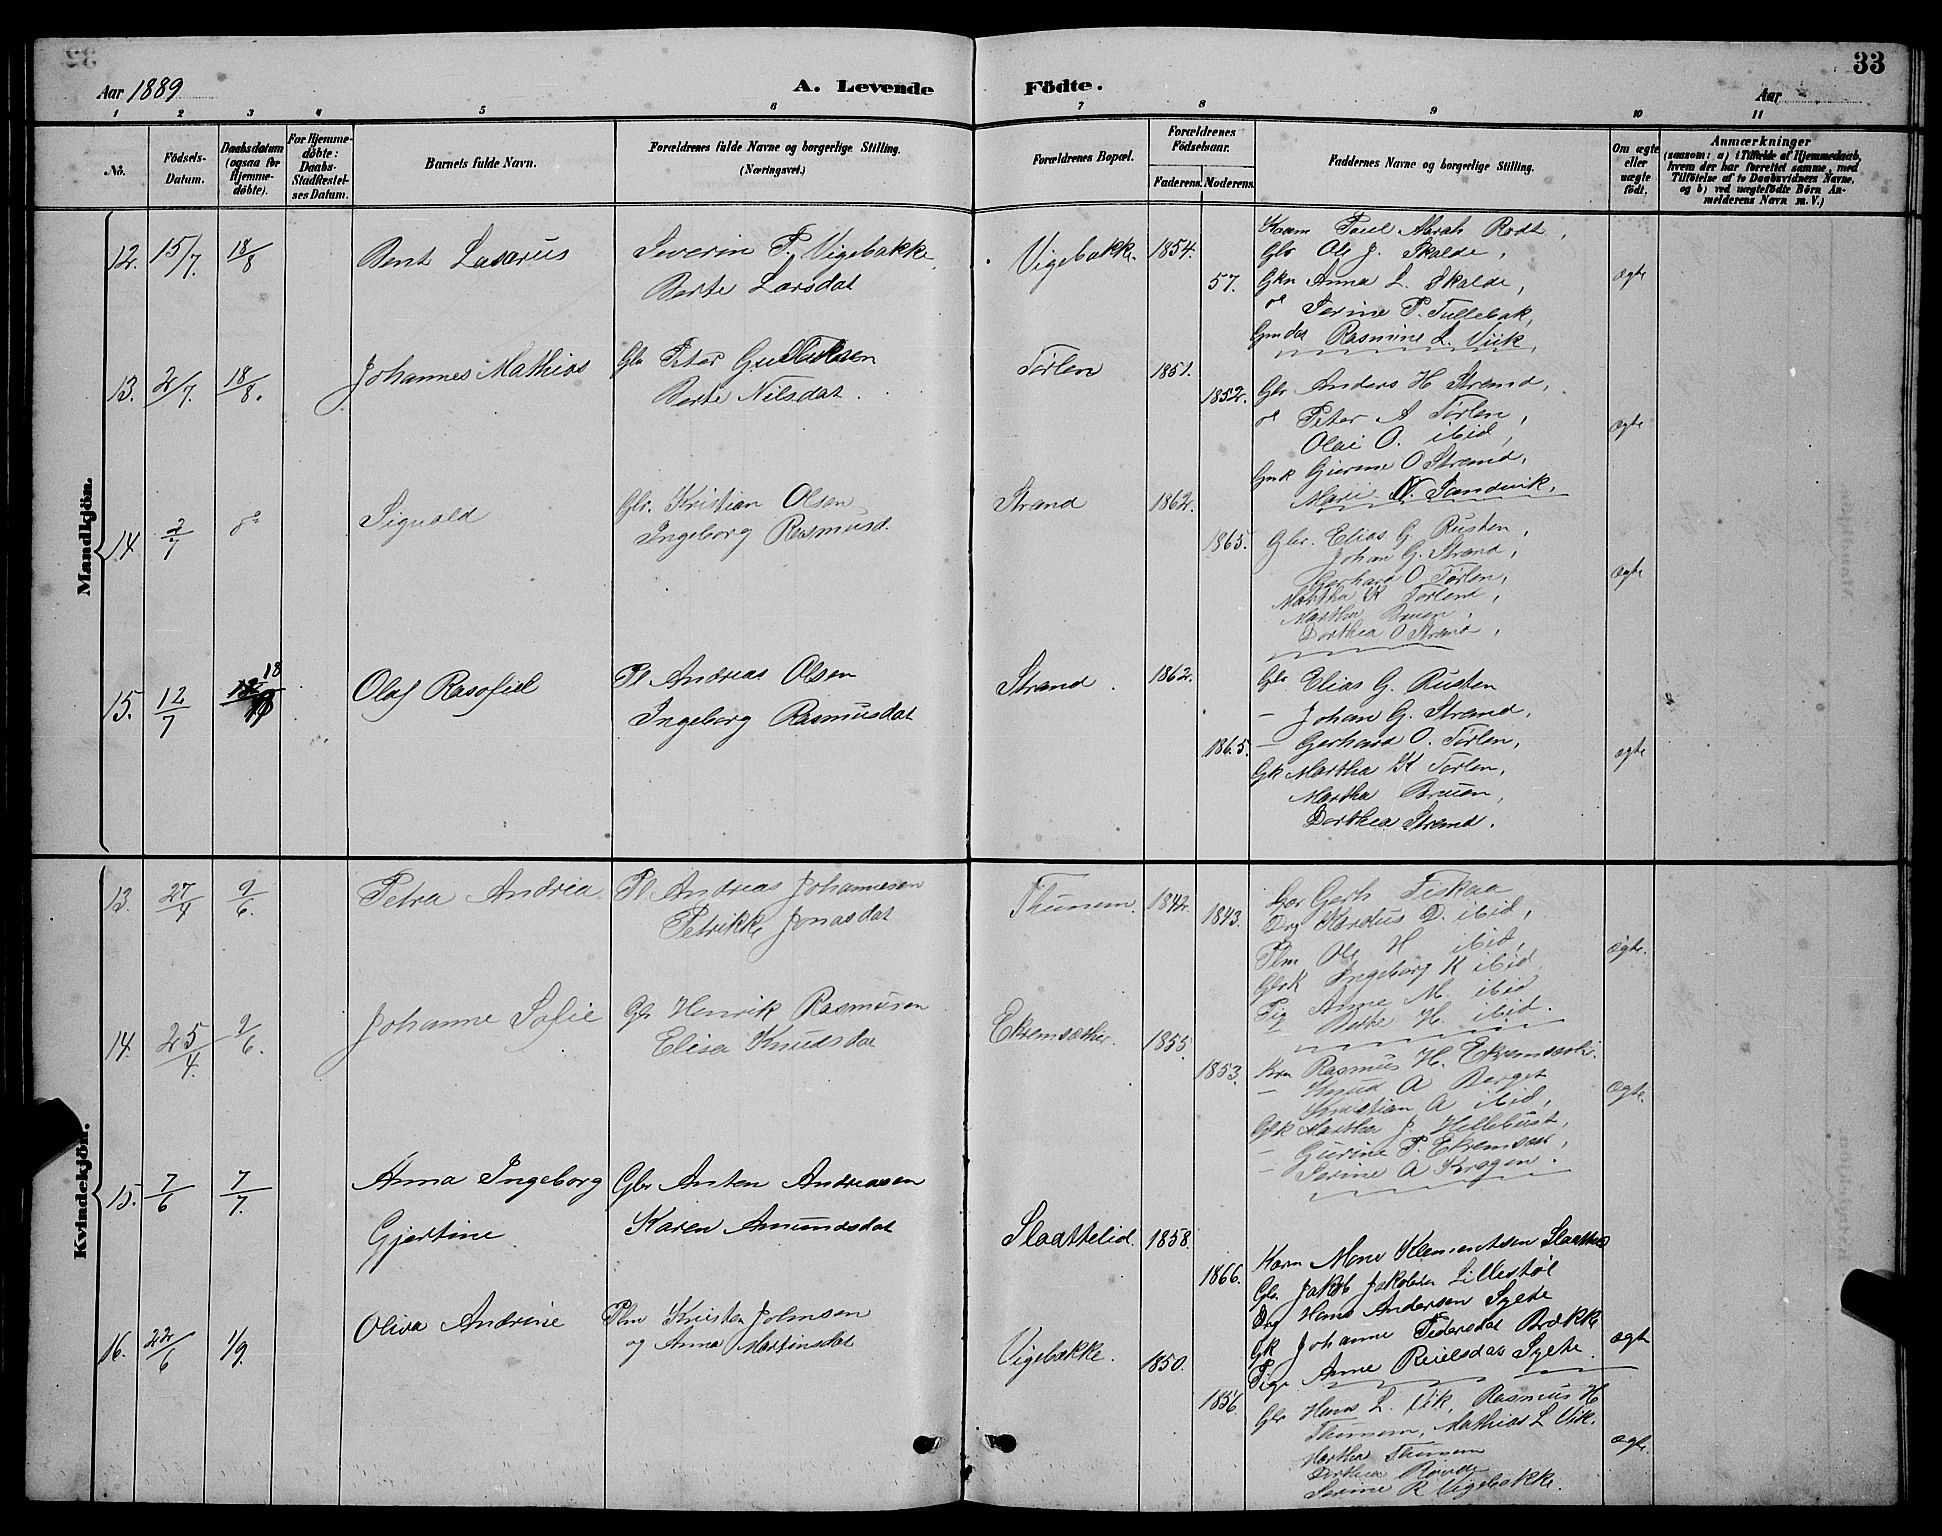 33
Aar 1889
A. Levende Födte.
Aar
1 2 3 4 5 6 7 8 9 10 11
No.
Födsels-Datum.
Daabsdatum (ogsaa for Hjemme-döbte).
For Hjemme-döbte: Daabs-Stadfæstel-ses Datum.
Barnets fulde Navn.
Forældrenes fulde Navne og borgerlige Stilling. (Næringsvei.)
Forældrenes Bopæl.
Forældrenes Födselsaar.
Faderens. Moderens.
Faddernes Navne og borgerlige Stilling.
Om ægte eller uægte födt.
Anmærkninger
(saasom: a) i Tilfælde af Hjemmedaab, hvem der har forrettet samme, med Tilföielse af to Daabsvidners Navne, og b) ved uægtefödte Börn An-melderens Navn m. V.)
Mandkjön.
12. 15/7. 18/8 Bent Lasarus
Severin P. Vigebakke
Berte Larsdat
Vigebakke. 1854.
57.
Paul Rodt,
Gbr Ole J. Skalde,
Gkn Anna L. Skalde,
Serine P. Tullebak,
Rasmine L. Viik,
ægte
13. 2/7. 18/8. Johannes Mathias
Gbr Peter
Berte Nilsdat.
Torlen 1851.
1852.
Gbr Anders H Strand,
Peter A Torlen,
Olai O. ibid,
Gmk O Strand,
N. Sandvik.
ægte
14. 2/7 Sigvald
Gbr. Kristian Olsen
Ingeborg Rasmusd.
Strand 1862.
1865.
Gbr. Elias G. Rusten,
Johan G. Strand,
Gerhard O Torlen,
Martha K Torlen,
Martha Bruen,
Dorthea O Strand,
ægte
15. 12/7 18
Olaf
Pl Andreas Olsen
Ingeborg Rasmusdat
Strand. 1862.
1865.
Gbr Elias G. Rusten
- Johan G. Strand,
- Gerhard O. Torlen,
Gk Martha K Torlen,
Martha Bruen,
Dorthea Strand.
ægte
Kvindekjön.
13. 27/4 9/6. Petra Andrea
Pl. Andreas Johannesen
Petrikke Jonasdat
Thunem. 1842.
1843.
Gerh Fiskaa
D. ibid,
Plm Ole H ibid,
Gbk Ingeborg K ibid
Pig Anne M. ibid
Berte H. ibid.
ægte.
14. 25/4. 9/6. Johanne Sofie
Gbr Henrik Rasmusen
Elisa Knudsdat
Ekremsæther. 1855.
1853.
Rasmus H.
- Knud A Berget
Kristian A ibid,
Gbk Martha J. Hellebust,
- Gurine P.
- Serine A Kragen.
ægte.
15. 7/6 7/7. Anna Ingeborg
Gjertine
Gbr Anten Andreasen
Karen Amundsdat
Slaattelid. 1858.
1866.
Mons Klementsen
Gbr Jakob Jakobsen Lillestøl
Drg Hans Andersen Sylte
Gk Johanne Pedersdat Brække
Pige Anne Sylte.
ægte
16. 22/6 1/9. Oliva Andrine
Plm Knut Johnsen
og Anna Martinsdat
Vigebakke. 1850.
1856
Gbr Hans L. Vik, Rasmus H
Thunem, Mathias L Vik.
Martha Thunem
Dorthea
Serine R Vigebakke.
ægte.